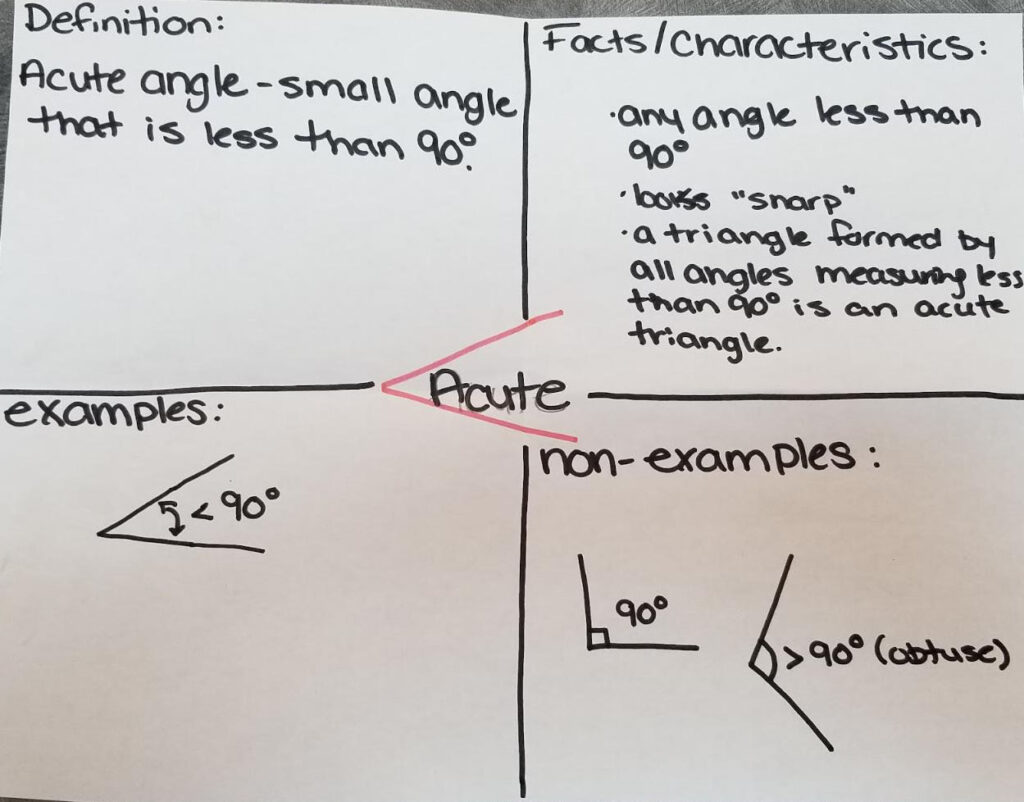 Definition:
Acute angle - small angle
that is less than 90°.
Facts/Characteristics:
· any angle less than
90°
· looks "sharp"
· a triangle formed by
all angles measuring less
than 90° is an acute
triangle.
Acute
examples:
< 90°
non-examples:
90°
> 90° (obtuse)